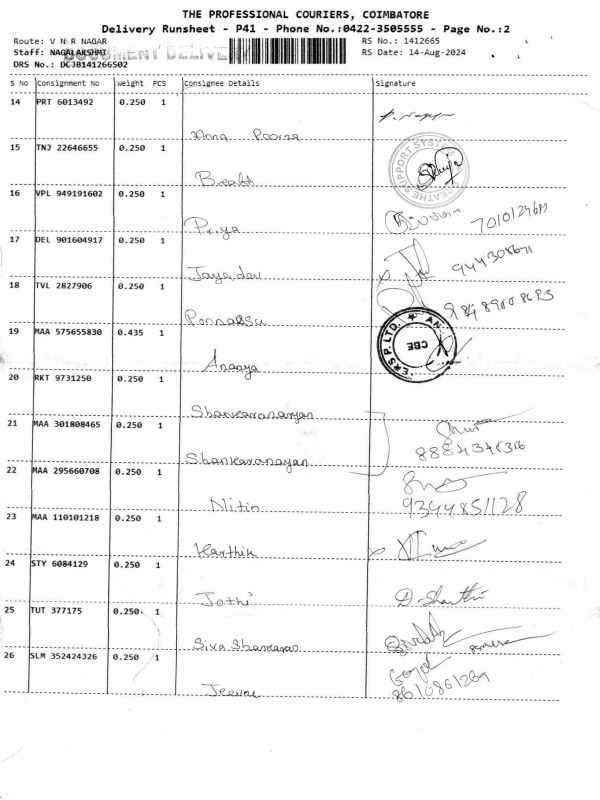 THE PROFESSIONAL COURIERS, COIMBATORE
Delivery Runsheet - P41 - Phone No.:0422-3505555 - Page No.:2
Route: V N R NAGAR RS No.: 1412665
Staff: NAGALAKSHMI RS Date: 14-Aug-2024
DOCUMENT DELIVERY
DRS No.: DCJB141266502
S No Consignment No Weight PCS Consignee Details Signature
14 PRT 6013492 0.250 1
Poorna
15 TNJ 22646655 0.250 1
SUPPORT SYSTEM
Breath
16 VPL 949191602 0.250 1
Priya
17 DEL 901604917 0.250 1
Jayadev
18 TVL 2827906 0.250 1
Ponnarasu
19 MAA 575655830 0.435 1
CBE
Ananya
20 RKT 9731250 0.250 1
Shankaranarayan
21 MAA 301808465 0.250 1
Shankaranarayan
22 MAA 295660708 0.250 1
Nitin 9344851128
23 MAA 110101218 0.250 1
Karthik
24 STY 6084129 0.250 1
Jothi D. Shanthi
25 TUT 377175 0.250 1
Siva Shankaran
26 SLM 352424326 0.250 1
Jeeva 8610861269